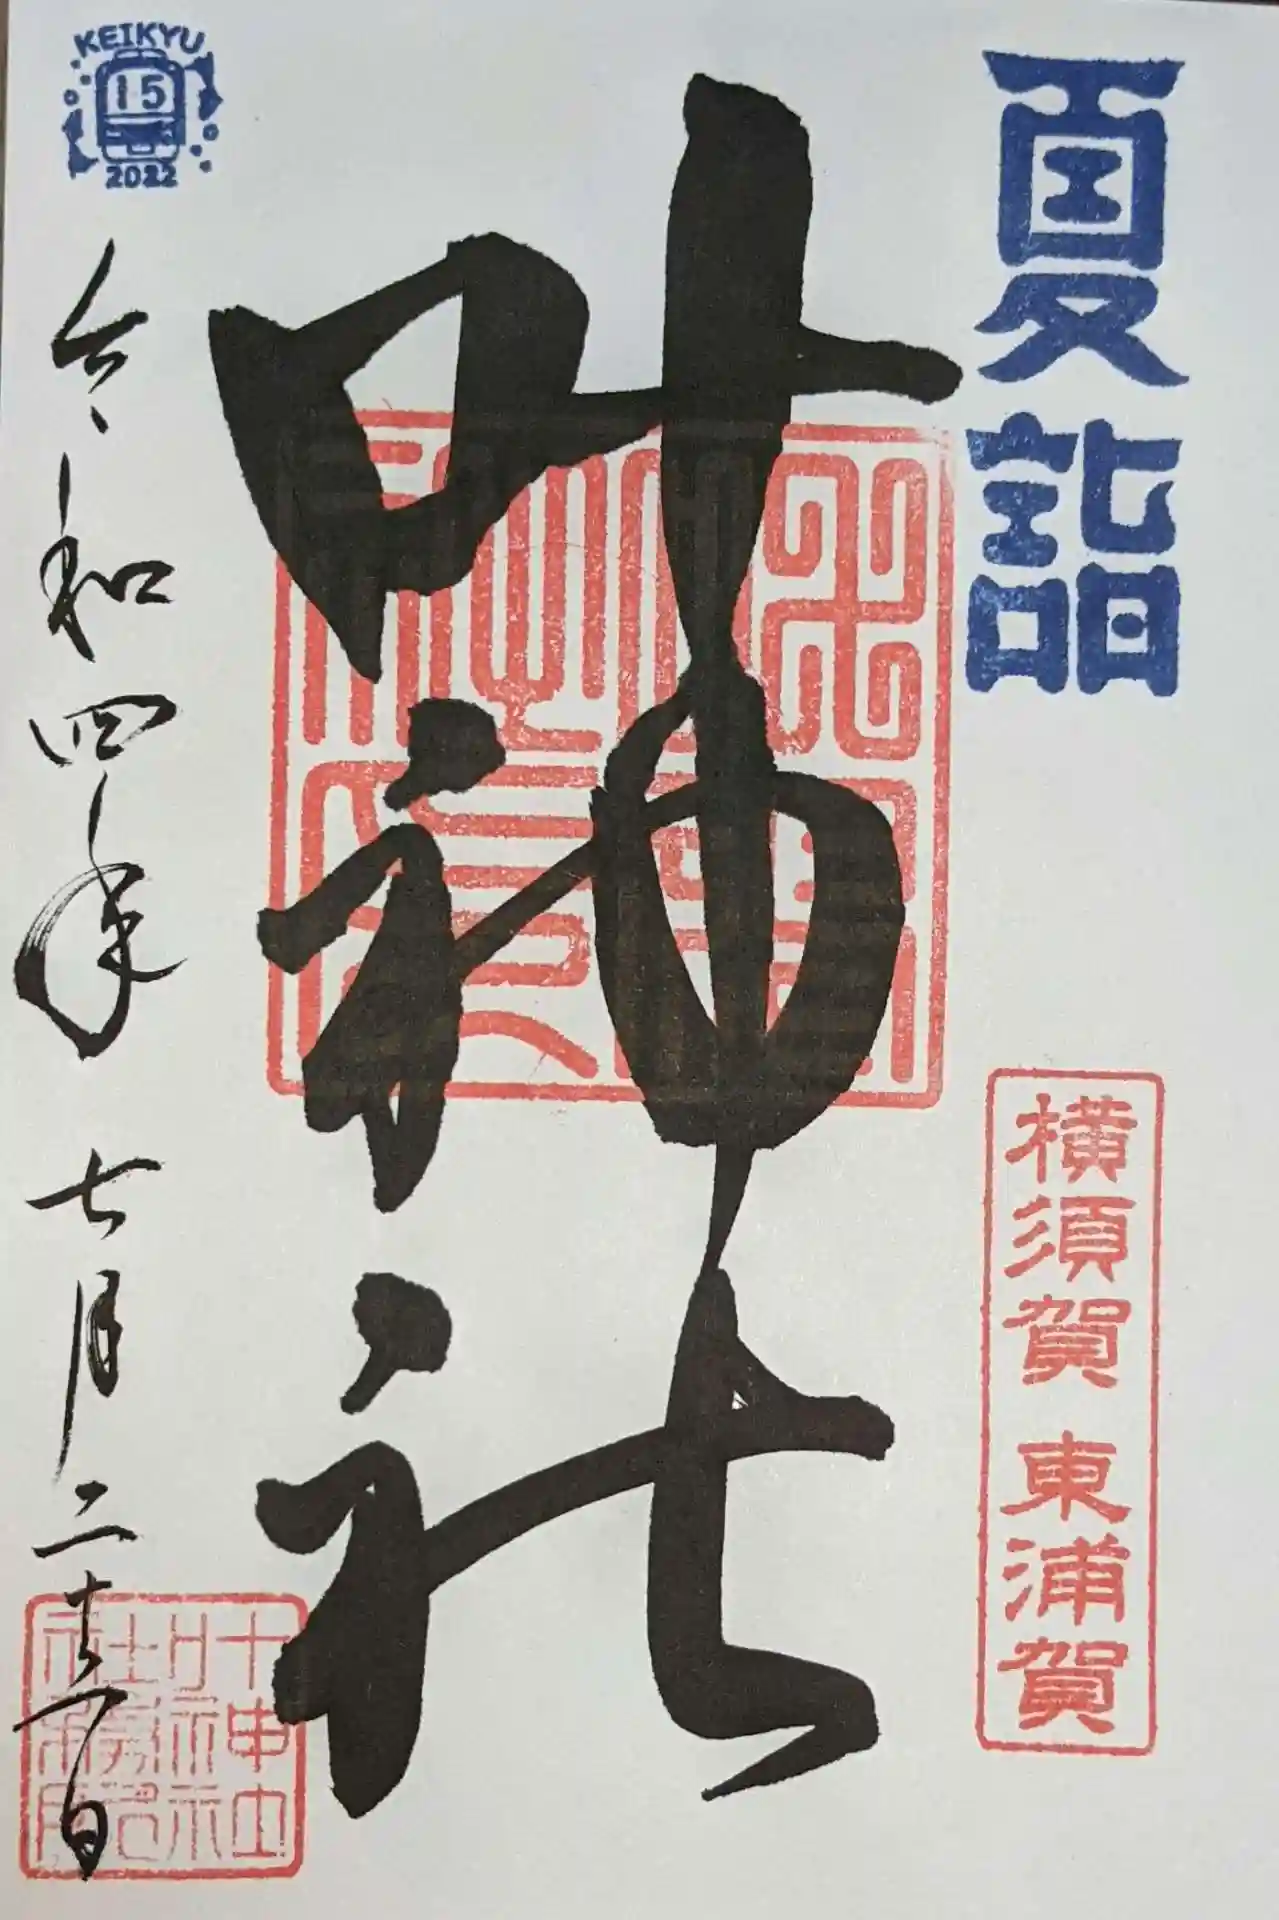 夏詣
横須賀 東浦賀
叶神社
KEIKYU
15
2022
令和四年 七月二十日